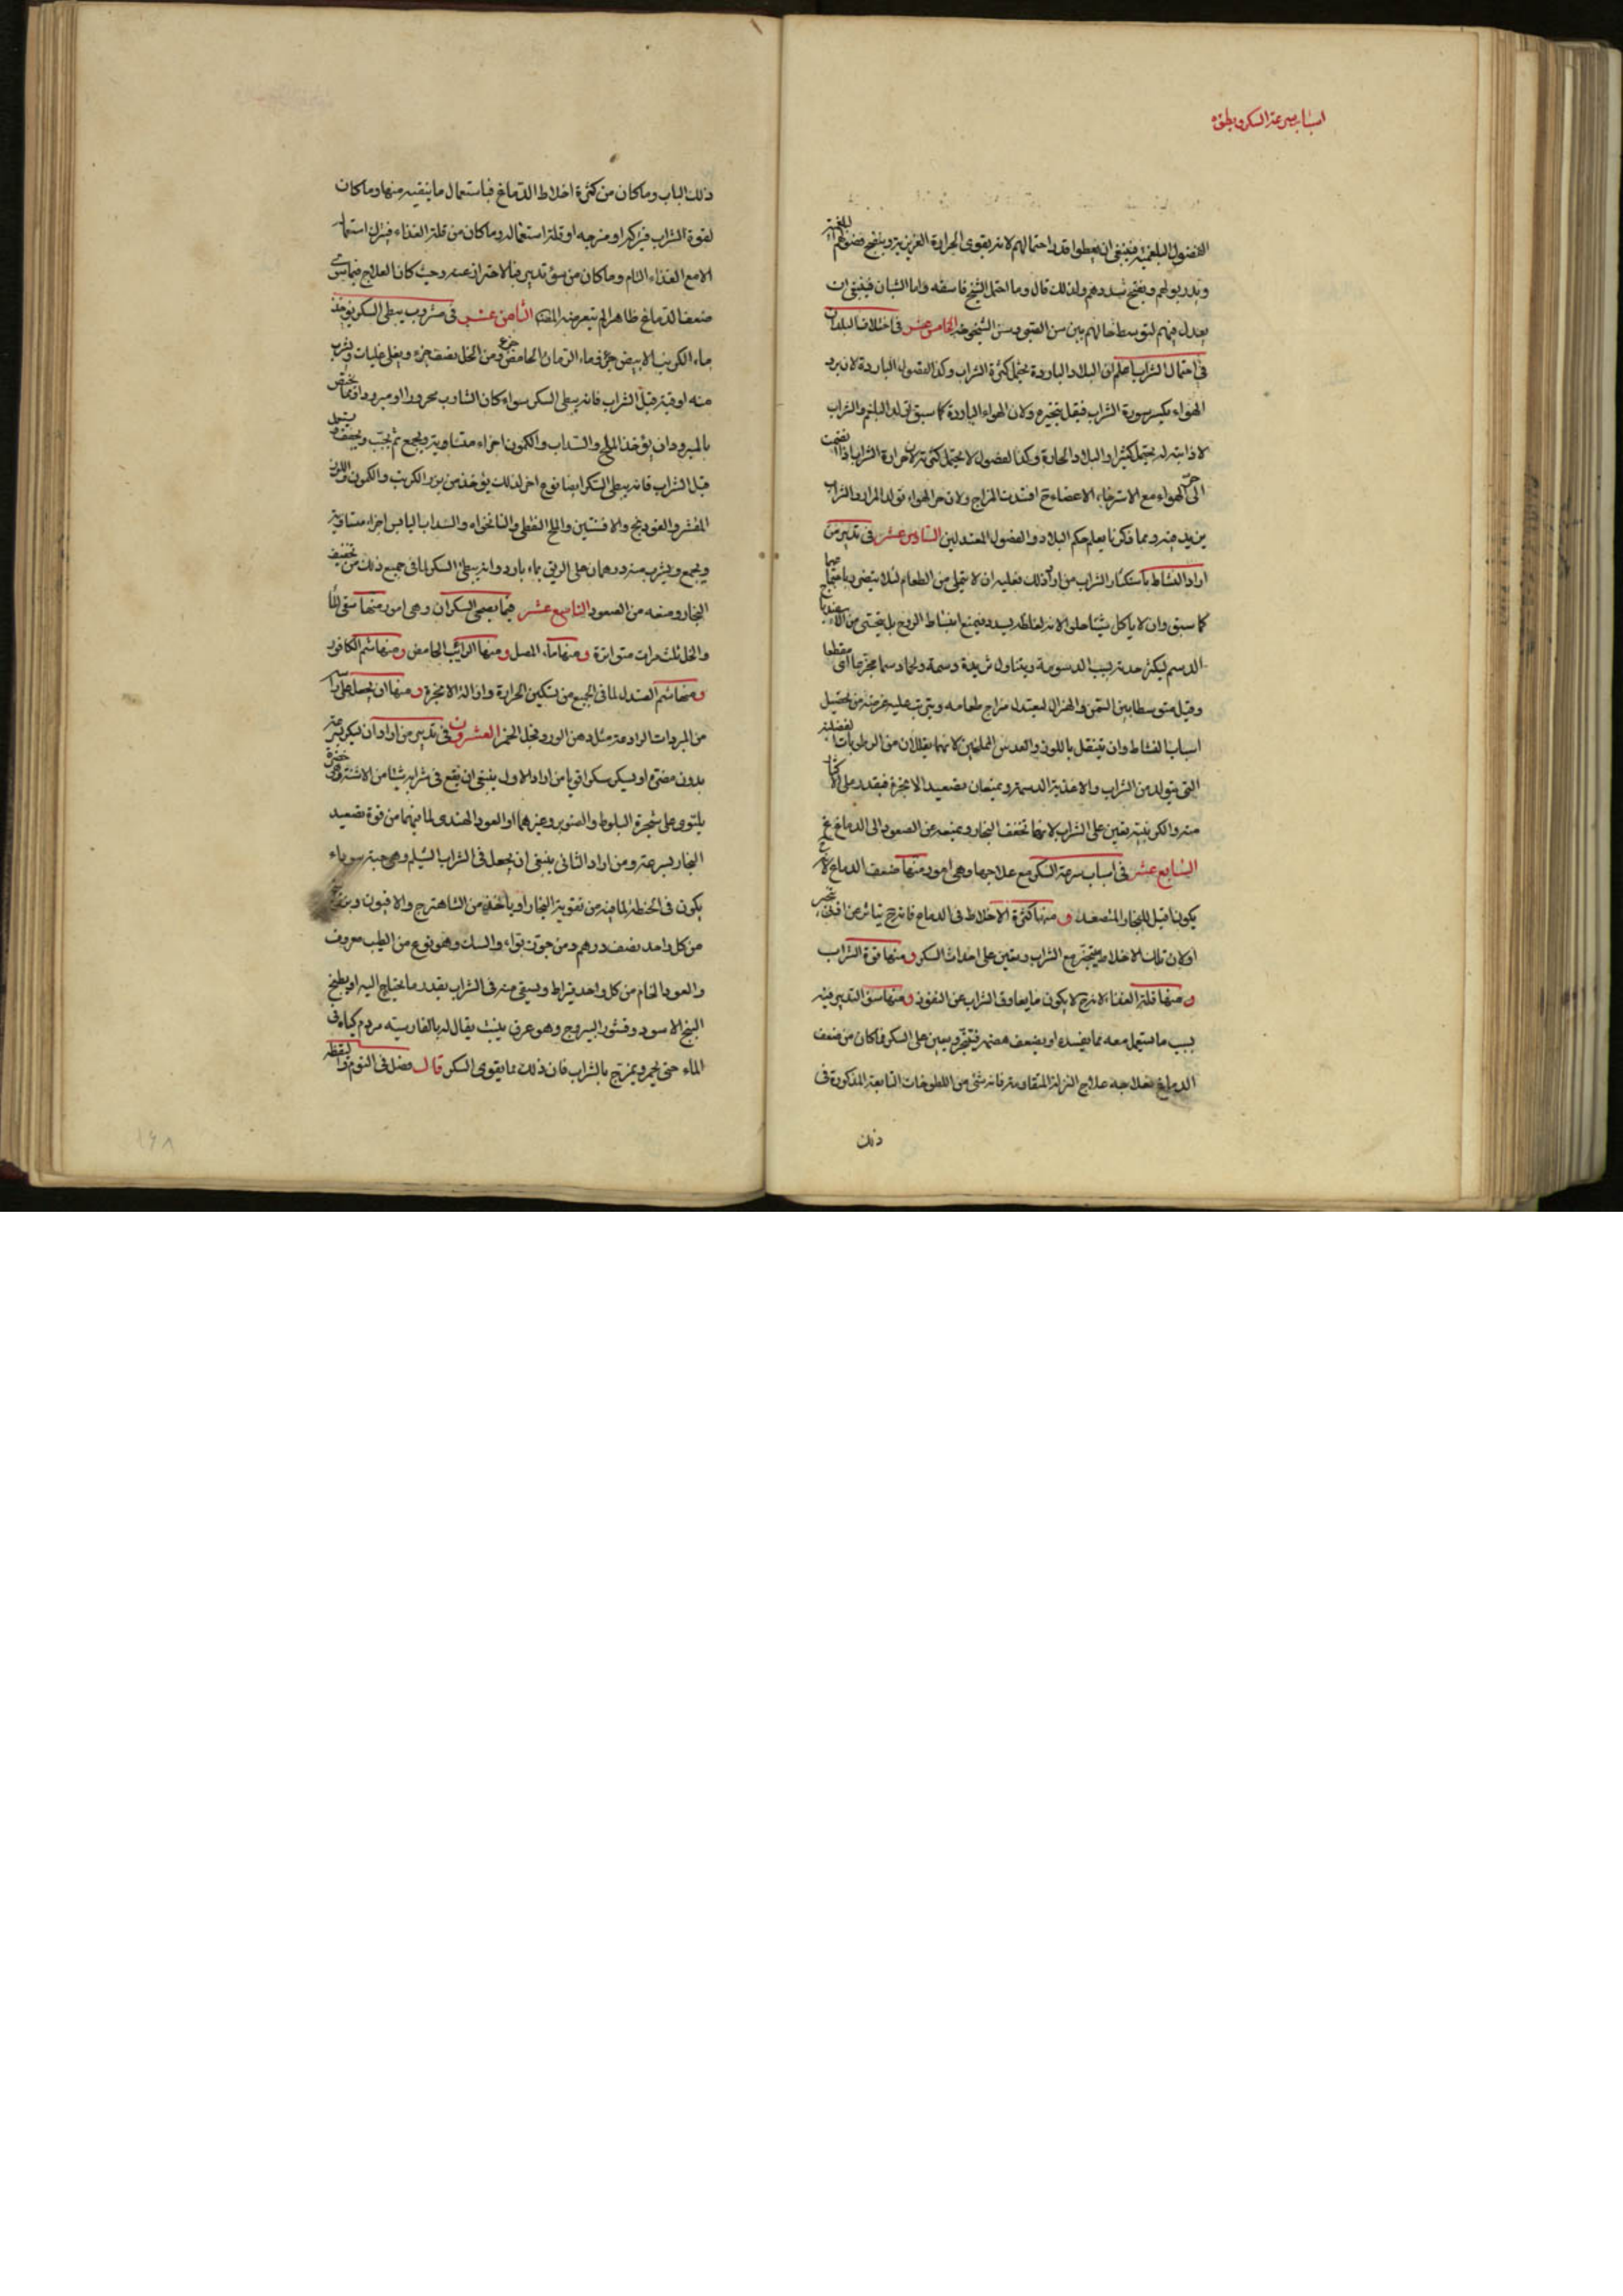 اسباب سرعة السكر وبطؤه
الفضول البلغمية فينبغى ان يعطوا قدر احتمالهم لانه يقوى الحرارة الغريزية وينضج فضولهم البلغمية
ويدر بولهم ويفتح سددهم ولذلك قال وما احتمل الشيخ فاسقه واما الشبان فينبغى ان
يعدل فيهم لتوسط حالهم بين سن الصبى وسن الشيخوخة الخامس عشر فى اختلاف البلدان
فى احتمال الشراب اعلم ان البلاد الباردة يحتمل كثرة الشراب وكذا الفصول الباردة لان برد
الهواء يكسر سورة الشراب فيقل تبخيره ولان الهواء الباردة كما سبق تولد البلغم والشراب
لاذابته له يحتمل كثيرا والبلاد الحارة وكذا الفصول لا يحتمل كثرته لان حرارة الشراب اذا انضمت
الى حر الهواء مع الاسترخاء الاعضاء ح افسدت المزاج ولان حر الهواء تولد المرار والشراب
يزيد فيه ومما ذكرنا يعلم حكم البلاد والفصول المعتدلين السادس عشر فى تدبير من
اراد النشاط باستكثار الشراب من اراد ذلك فعليه ان لا يتملى من الطعام لئلا يتضرر باجتماعهما
كما سبق وان لا ياكل شيئا حلوا لانه لغلظه يسدد فيمنع انبساط الروح بل يتحسى من
الدسم ليكثر حدته بسبب الدسومة ويتناول ثريدة دسمة ولحما دسما مجزعا اى مقطعا
وقيل متوسطا بين السمن والهزال ليعتدل مزاج طعامه ويترتب عليه غرضه من تحصيل
اسباب النشاط وان يتنقل باللوز والعدس المملحين لانهما يقللان من الرطوبات الفضلية
التى يتولد من الشراب والاغذية الدسمة ويمنعان تصعيد الابخرة فيقدر على الاكثار
منه والكرنبية يعين على الشراب لانها تخفف البخار ويمنعه عن الصعود الى الدماغ
السابع عشر فى اسباب سرعة السكر مع علاجها وهى امور منها ضعف الدماغ لانه ح
يكون اقبل للبخار المتصعد ومنها كثرة الاخلاط فى الدماغ فانه ح يتاثر عن اقل تبخير
او لان تلك الاخلاط يتبخر مع الشراب ويعين على احداث السكر ومنها قوة الشراب
ومنها قلة الغذاء لانه ح لا يكون ما يعاوق الشراب عن النفوذ ومنها سوء التدبير فيه
بسبب ما يستعمل معه مما يفسده او يضعف هضمه فتبخر ويعين على السكر فما كان من ضعف
الدماغ فعلاجه علاج النزلة المتقادمة فانه شئ من اللطوخات النابعة المذكورة فى
ذلك
ذلك الباب وما كان من كثرة اخلاط الدماغ فباستعمال ما ينقيه منها وما كان
لقوة الشراب فبتركه او مزجه او قلة استعماله وما كان من قلة الغذاء فبترك استعماله
الا مع الغذاء التام وما كان من سوء تدبير فبالاحتراز عنه وحيث كان العلاج فيما سوى
ضعف الدماغ ظاهرا لم يتعرض له المصنف الثامن عشر فى مشروب يبطى السكر يؤخذ
ماء الكرنب الابيض جزء وماء الرمان الحامض جزء ومن الخل نصف جزء ويغلى غليات ويشرب
منه اوقية قبل الشراب فانه يبطى السكر سواء كان الشارب محرورا او مبرودا ومما يختص
بالمبرود ان يؤخذ الملح والسداب والكمون اجزاء متساوية ويجمع ثم يحبب ويجفف ويستعمل
قبل الشراب فانه يبطى السكر ايضا نوع اخر لذلك يؤخذ من بزر الكرنب والكمون واللوز
المقشر والفودنج والافسنتين والملح النفطى والنانخواه والسداب اليابس اجزاء متساوية
ويجمع ويشرب منه درهمان على الريق بماء بارد وانه يبطئ السكر لما فى جميع ذلك من تجفيف
البخار ومنعه من الصعود التاسع عشر فيما يصحى السكران وهى امور منها سقى الماء
والخل ثلث مرات متواترة ومنها ماء المصل ومنها الرائب الحامض ومنها شم الكافور
ومنها شم الصندل لما فى الجميع من تسكين الحرارة وازالة الابخرة ومنها ان يجعل على راسه
من المبردات الرادعة مثل دهن الورد وبخل الخمر العشرون فى تدبير من اراد ان يسكر بسرعة
بدون مضرة او يسكر سكرا قويا من اراد الاول ينبغى ان ينقع فى شرابه شيئا من الاشنة وهى خضرة
يلتوى على شجرة البلوط والصنوبر وغيرهما او العود الهندى لما فيهما من قوة تصعيد
البخار بسرعة ومن اراد الثانى ينبغى ان يجعل فى الشراب الشيلم وهى حبة سوداء
يكون فى الحنطة لما فيه من تقوية البخار او ياخذ من الشاهترج والافيون وبزر البنج
من كل واحد نصف درهم ومن جوز بواء والسك وهو نوع من الطيب معروف
والعود الخام من كل واحد قيراط ويسقى منه فى الشراب بقدر ما يحتاج اليه او يطبخ
البنج الاسود وقشور اليبروج وهو عرق ينبت يقال له بالفارسية مردم كياه فى
الماء حتى يحمر ويمزج بالشراب فان ذلك مما يقوى السكر قال فصل فى النوم واليقظة
١٤٨